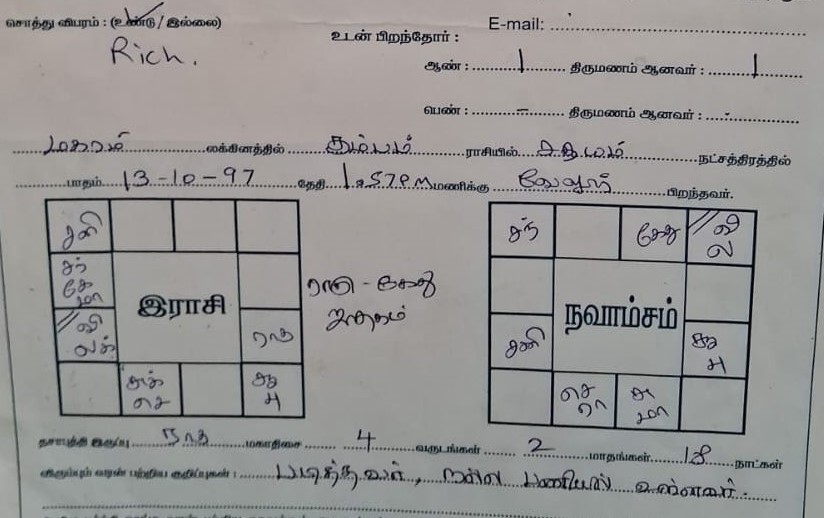 சொத்து விபரம் : (உண்டு / இல்லை)
E-mail:
Rich.
உடன் பிறந்தோர் :
ஆண் : 1 திருமணம் ஆனவர் : 1
பெண் : – திருமணம் ஆனவர் :
மகரம் லக்கினத்தில் கும்பம் ராசியில் சதயம் நட்சத்திரத்தில்
பாதம் 13-10-97 தேதி 1.57 PM மணிக்கு வேலூர் பிறந்தவர்.
சனி
சந்
கே
மா
இராசி
// வி
லக்
ராகு
சுக்
செ
சூ
பு
ராகு - கேது
ஜாதகம்
சந்
கேது
// வி
ல
நவாம்சம்
சனி
சூ
பு
செ
ரா
சு
மா
தசாபுத்தி இருப்பு ராகு மகாதிசை 4 வருடங்கள் 2 மாதங்கள் 18 நாட்கள்
விரும்பும் வரன் பற்றிய குறிப்புகள் : படித்தவர், நல்ல பணியில் உள்ளவர்.